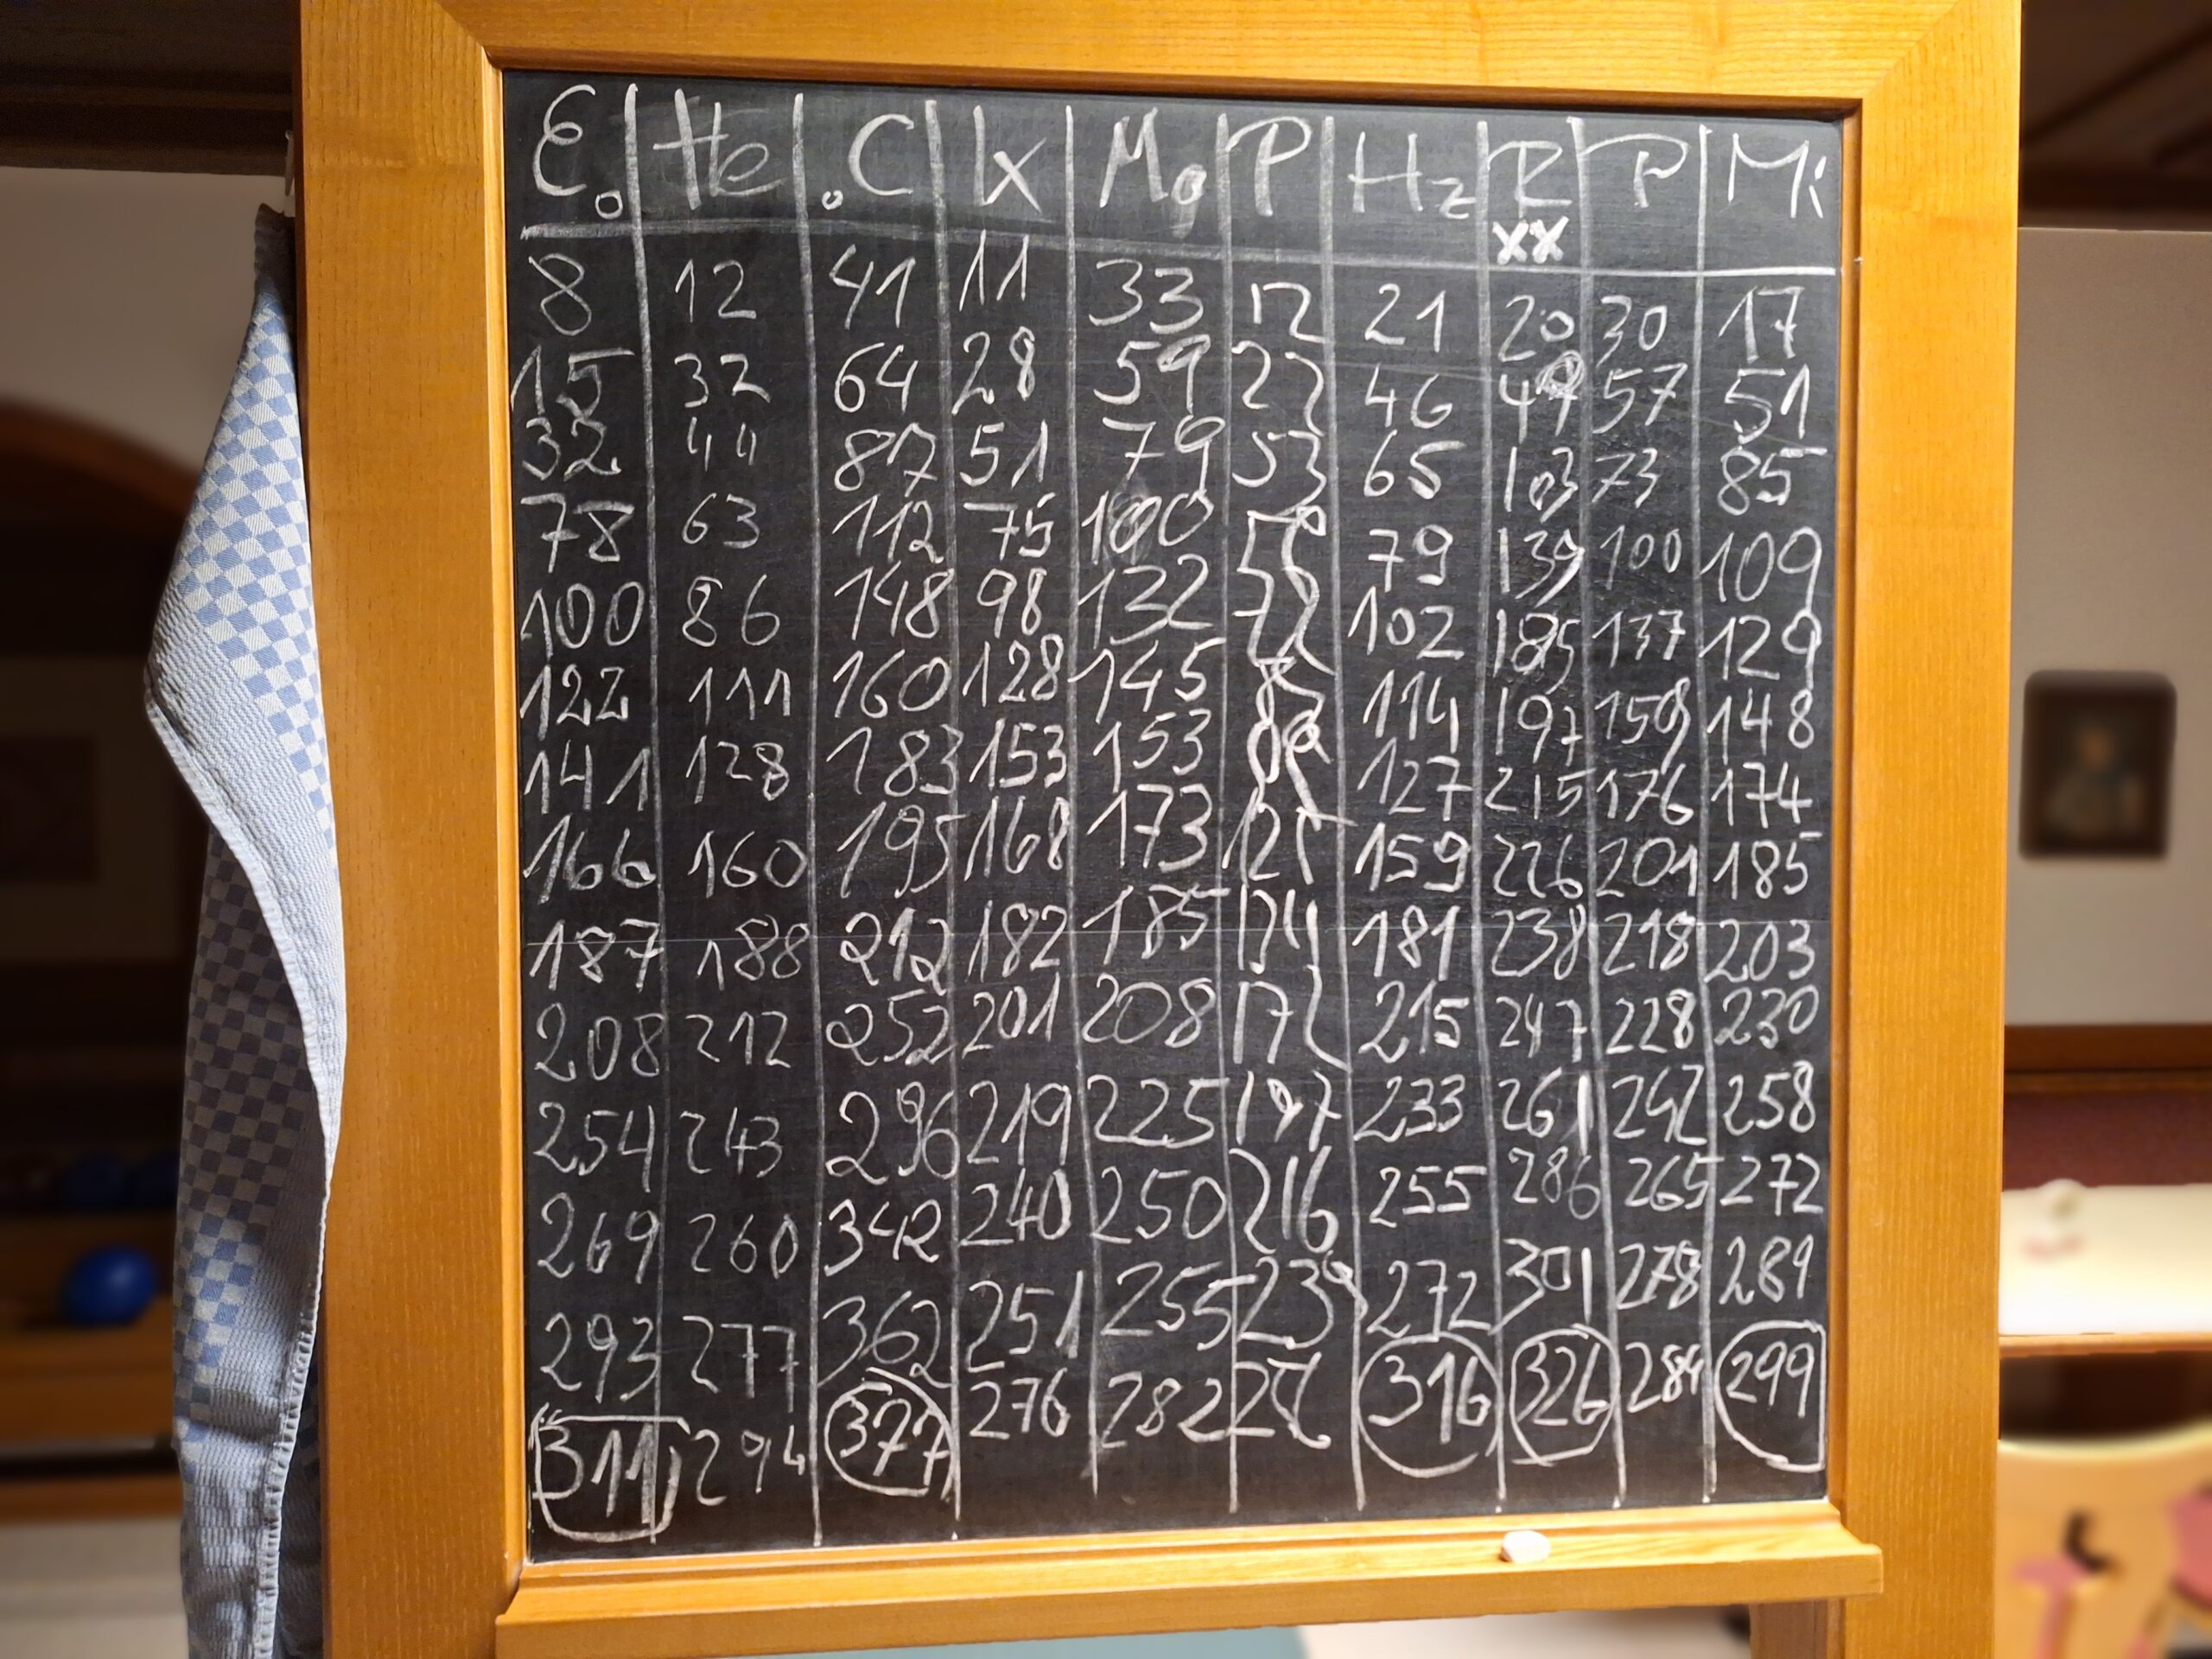 E. He .C IX Mg P Hz R P Mi
XX
8 12 41 11 33 12 21 20 30 17
15 32 64 28 59 22 46 49 57 51
32 44 87 51 79 53 65 103 73 85
78 63 112 75 100 79 139 100 109
100 86 148 98 132 72 102 185 137 129
122 111 160 128 145 114 197 159 148
141 128 183 153 153 127 215 176 174
166 160 195 168 173 159 226 201 185
187 188 212 182 185 181 238 218 203
208 212 252 201 208 172 215 247 228 230
254 243 296 219 225 197 233 261 242 258
269 260 342 240 250 216 255 286 265 272
293 277 362 251 255 239 272 301 278 289
311 294 377 276 282 316 326 284 299